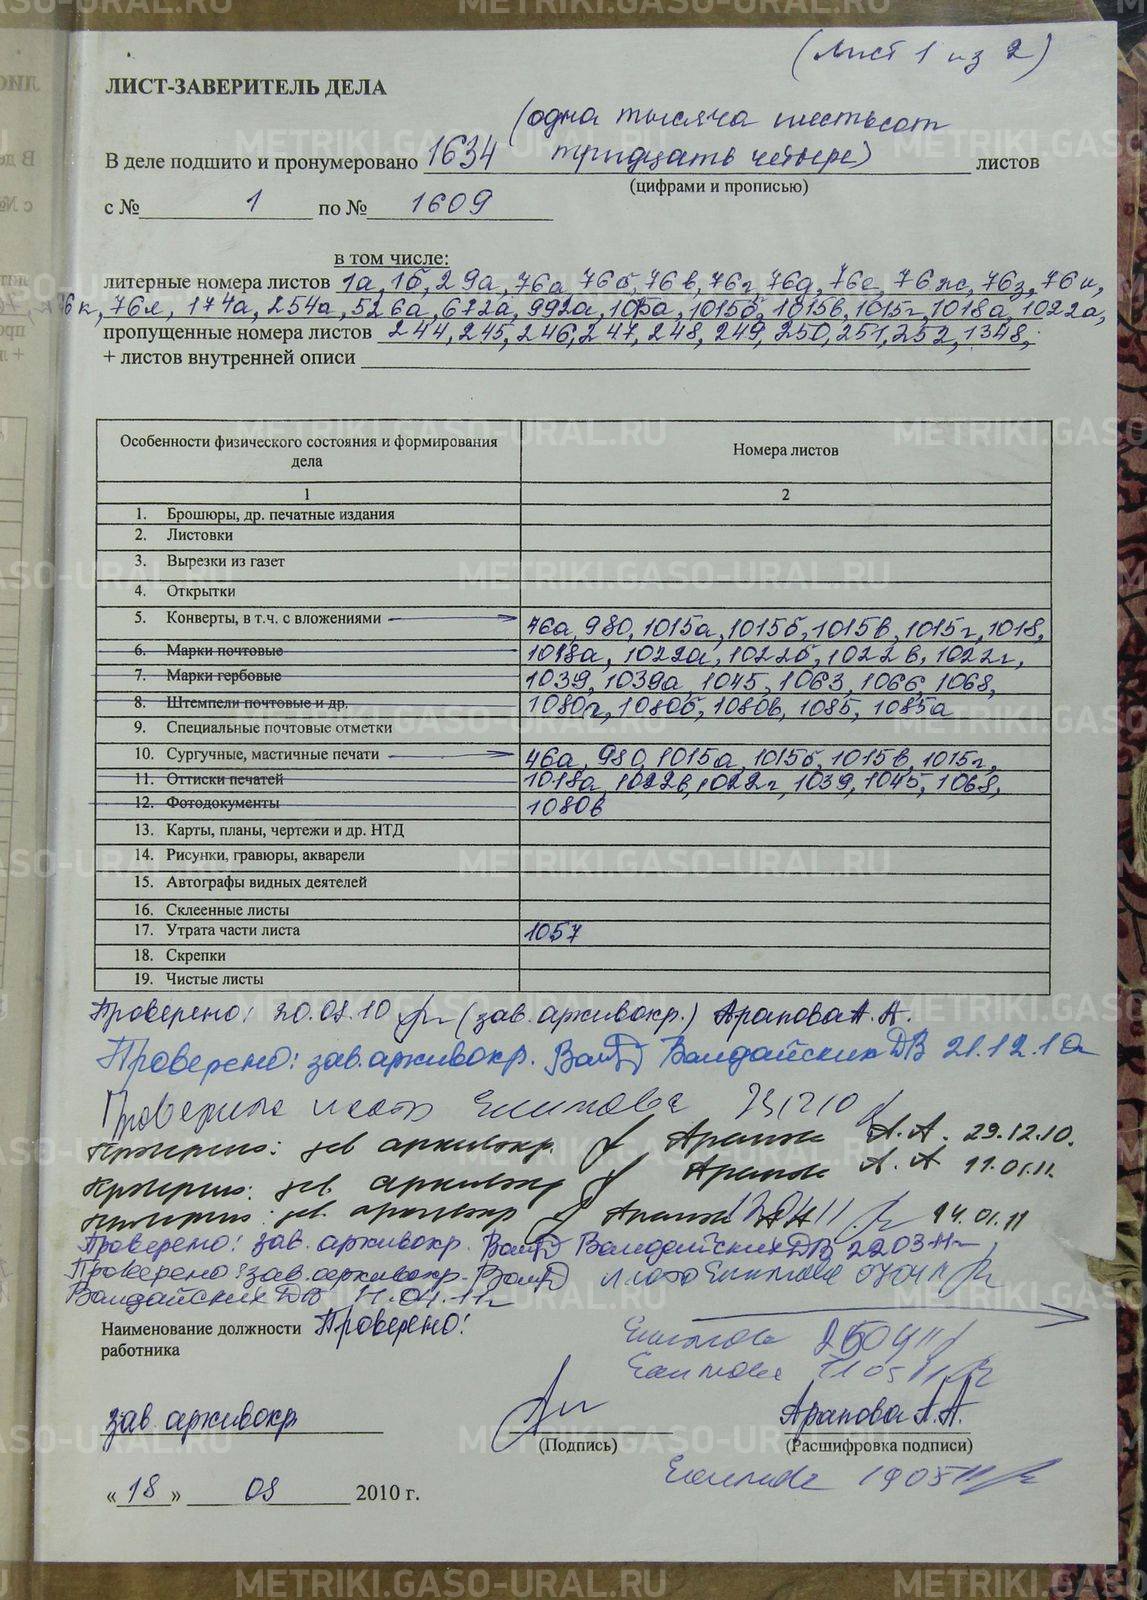 (Лист 1 из 2)
ЛИСТ-ЗАВЕРИТЕЛЬ ДЕЛА
(одна тысяча шестьсот
В деле подшито и пронумеровано 1634 тридцать четыре) листов
(цифрами и прописью)
с № 1 по № 1609
в том числе:
литерные номера листов 1а, 1б, 29а, 76а, 76б, 76в, 76г, 76д, 76е, 76ж, 76з, 76и,
76к, 76л, 174а, 254а, 526а, 672а, 992а, 1015а, 1015б, 1015в, 1015г, 1018а, 1022а,
пропущенные номера листов 244, 245, 246, 247, 248, 249, 250, 251, 252, 1348,
+ листов внутренней описи
Особенности физического состояния и формирования дела
Номера листов
1 2
1. Брошюры, др. печатные издания
2. Листовки
3. Вырезки из газет
4. Открытки
5. Конверты, в т.ч. с вложениями 76а, 980, 1015а, 1015б, 1015в, 1015г, 1018,
6. Марки почтовые 1018а, 1022а, 1022б, 1022в, 1022г,
7. Марки гербовые 1039, 1039а, 1045, 1063, 1066, 1068,
8. Штемпели почтовые и др. 1080а, 1080б, 1080в, 1085, 1085а
9. Специальные почтовые отметки
10. Сургучные, мастичные печати 76а, 980, 1015а, 1015б, 1015в, 1015г,
11. Оттиски печатей 1018а, 1022в, 1022г, 1039, 1045, 1068,
12. Фотодокументы 1080в
13. Карты, планы, чертежи и др. НТД
14. Рисунки, гравюры, акварели
15. Автографы видных деятелей
16. Склеенные листы
17. Утрата части листа 1057
18. Скрепки
19. Чистые листы
Проверено: 20.08.10 (зав. архивохр.) Арапова А.А.
Проверено: зав. архивохр. Валдайских ДВ 21.12.10
Проверено
Проверено: зав. архивохр. Арапова А.А. 29.12.10.
Проверено: зав. архивохр. Арапова А.А 11.01.11.
Проверено: зав. архивохр. Арапова АА 14.01.11
Проверено: зав. архивохр. Валдайских ДВ 22.03.11
Проверено: зав. архивохр.
Валдайских ДВ 11.04.11г
Наименование должности Проверено:
работника
зав. архивохр. Арапова А.А.
(Подпись) (Расшифровка подписи)
190511
«18» 08 2010 г.
METRIKI.GASO-URAL.RU